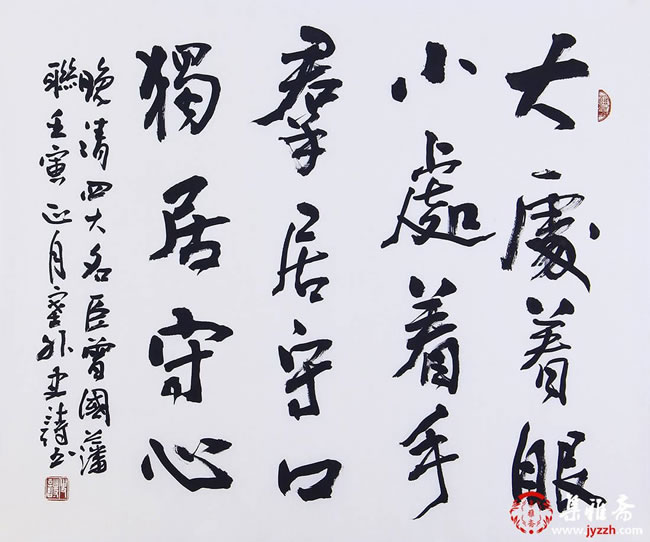 大處着眼
小處着手
羣居守口
獨居守心
晚清四大名臣曾國藩
聯壬寅正月塞外史詩書
集雅斋
www.jyzzh.com